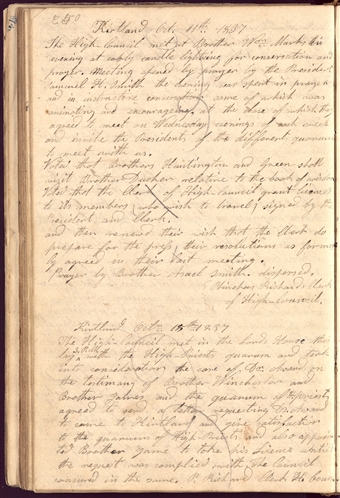 250
Kirtland Oct. 11th. 1837
The High-Council met at Brother Wm. Marks this
evening at early candle lighting for conversation and
prayer. Meeting opened by prayer by the President
Samuel H. Smith the evening was spent in prayer
and in instructive conversation some of which was
animating and encouraging, at the close of which they
agreed to meet on Wednesday evenings of each week
and invite the Presidents of the different quorums
to meet with us.
Voted that Brothers Huntington and Green shall
visit Brother relative to the book of
Voted that the Clerk of High-Council grant licence
to its members (who wish to travel) signed by the
President, and Clerk.
and then renewed their wish that the Clerk do
prepare for the press, their resolutions as former
ly agreed in their last meeting.
Prayer by Brother Asael Smith. dispersed.
Phinehas Richards Clerk
of High-Council.
Kirtland Oct. 1837
The High-Council met in the Lord's House this
with the High Priests quorum and took
into consideration the case of Dr. Avard on
the testimony of Brother Winchester and
Brother and the quorum of H priests
agreed to send a letter requesting Dr. Avard
to come to Kirtland and give satisfaction
to the quorum of High Priests. and also appoin
ted Brother Jame to take his licence until
the request was complied with. The Council
concured in the same. P. Richards Clerk H. Coun